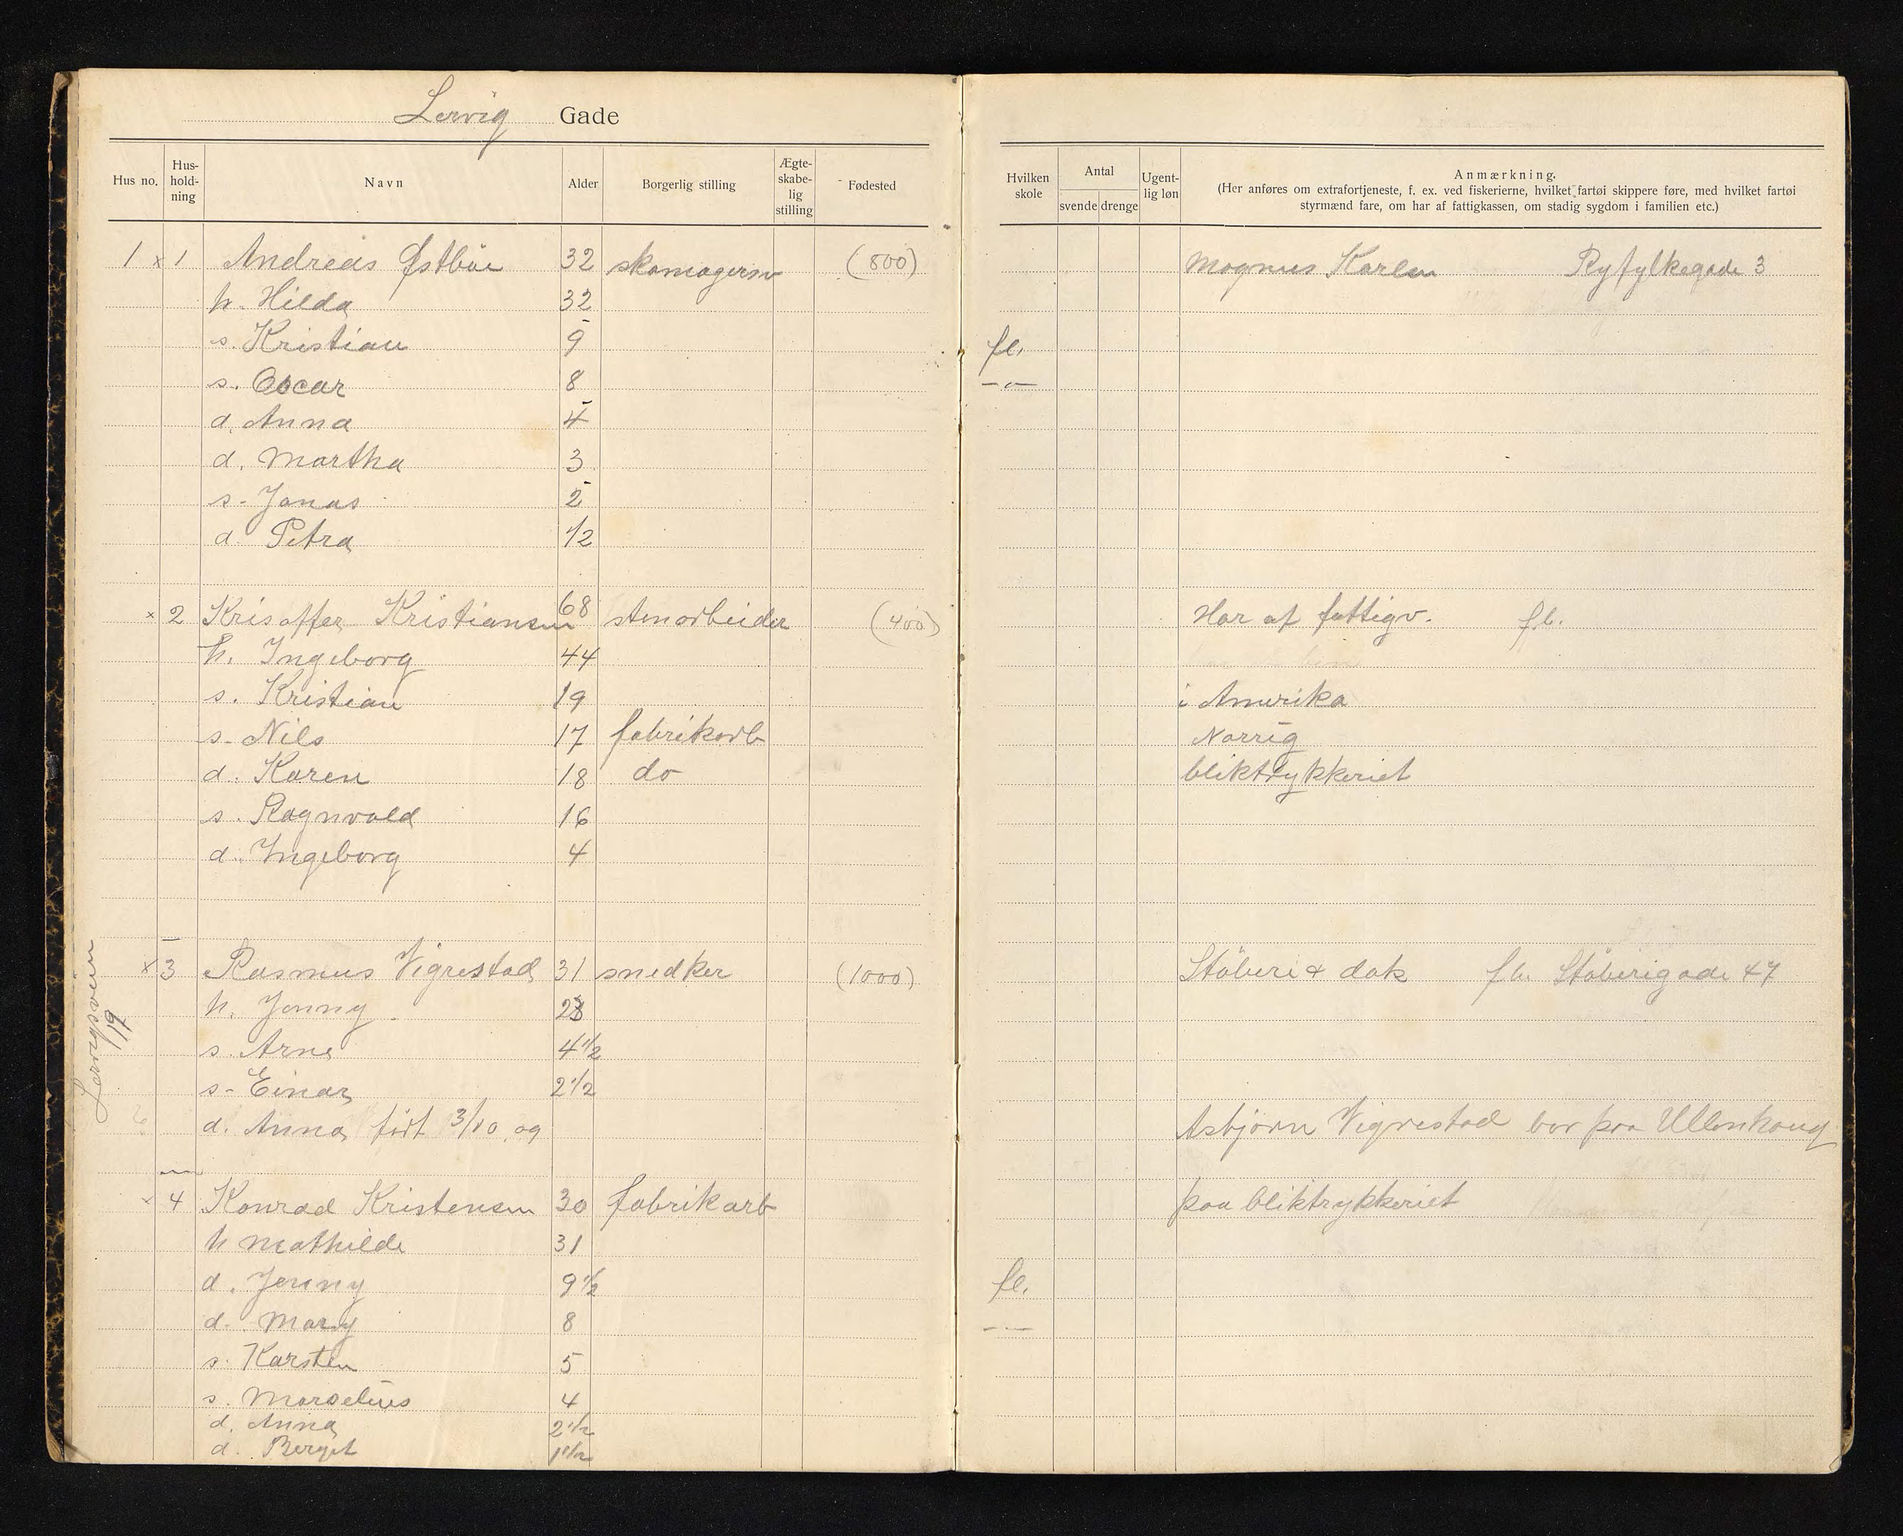 Lervig Gade
Hus no. Hus-hold-ning Navn Alder Borgerlig stilling Ægte-skabe-lig stilling Fødested Hvilken skole Antal svende drenge Ugent-lig løn Anmærkning.
(Her anføres om extrafortjeneste, f. ex. ved fiskerierne, hvilket fartøi skippere føre, med hvilket fartøi
styrmænd fare, om har af fattigkassen, om stadig sygdom i familien etc.)
1 x 1 Andreas Østbøe 32 skomagersv (800) Magnus Karlsen Ryfylkegade 3
h. Hilda 32
s. Kristian 9 fl.
s. Oscar 8 -"-
d. Anna 4
d. Martha 3
s. Jonas 2
d Petra 1/2
x 2 Krisoffer Kristiansen 68 stenarbeider (400) Har af fattigv. fl.
h. Ingeborg 44
s. Kristian 19 i Amerika
s. Nils 17 fabrikarb Norrig
d. Karen 18 do bliktrykkeriet
s. Ragnvald 16
d. Ingeborg 4
x 3 Rasmus Vigrestad 31 snedker (1000) Støberi & dok fl. Støberigade 47
h. Jenny 28
s. Arne 4 1/2
s. Einar 2 1/2
d. Anna født 3/10 og Asbjørn Vigrestad bor paa Ullenhaug
x 4 Konrad Kristensen 30 fabrikarb paa bliktrykkeriet
h Mathilde 31
d. Jenny 9 1/2 fl.
d. Mary 8 -"-
s. Karsten 5
s. Marselius 4
d. Anna 2 1/2
d. Berget 1 1/2
Lervigsveien
19